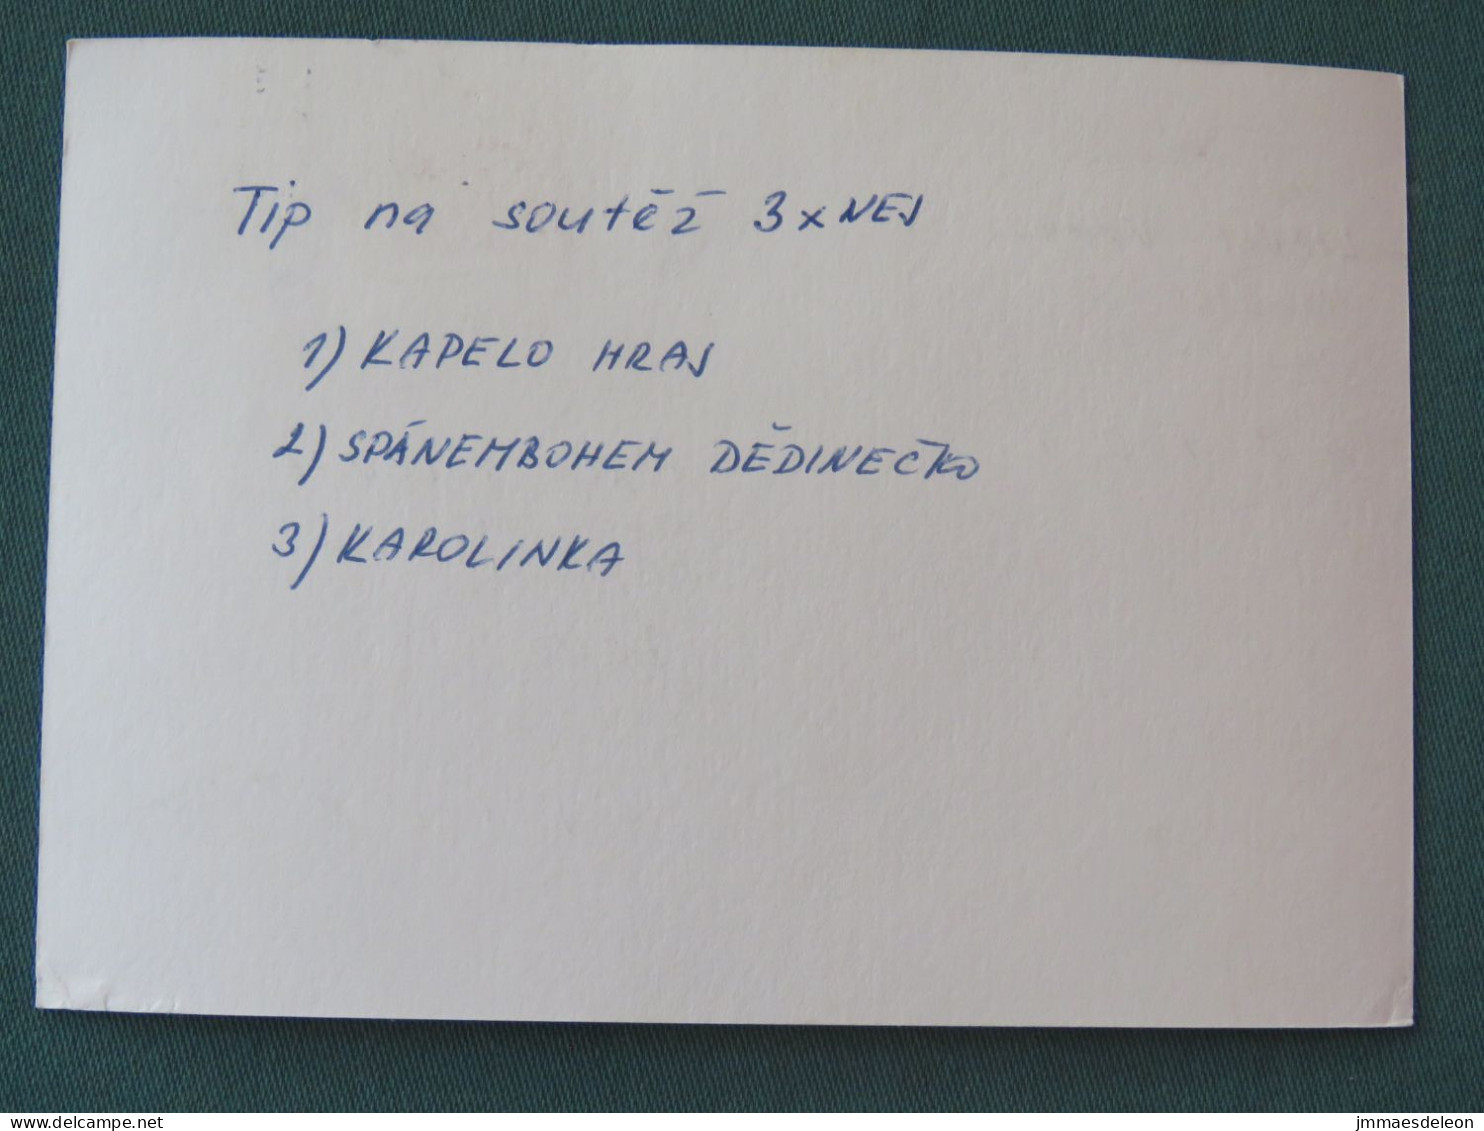 Tip na soutěž 3xNEJ
1) KAPELO HRAJ
2) SPÁNEMBOHEM DĚDINEČKO
3) KAROLINKA
delcampe.net
jmmaesdeleon